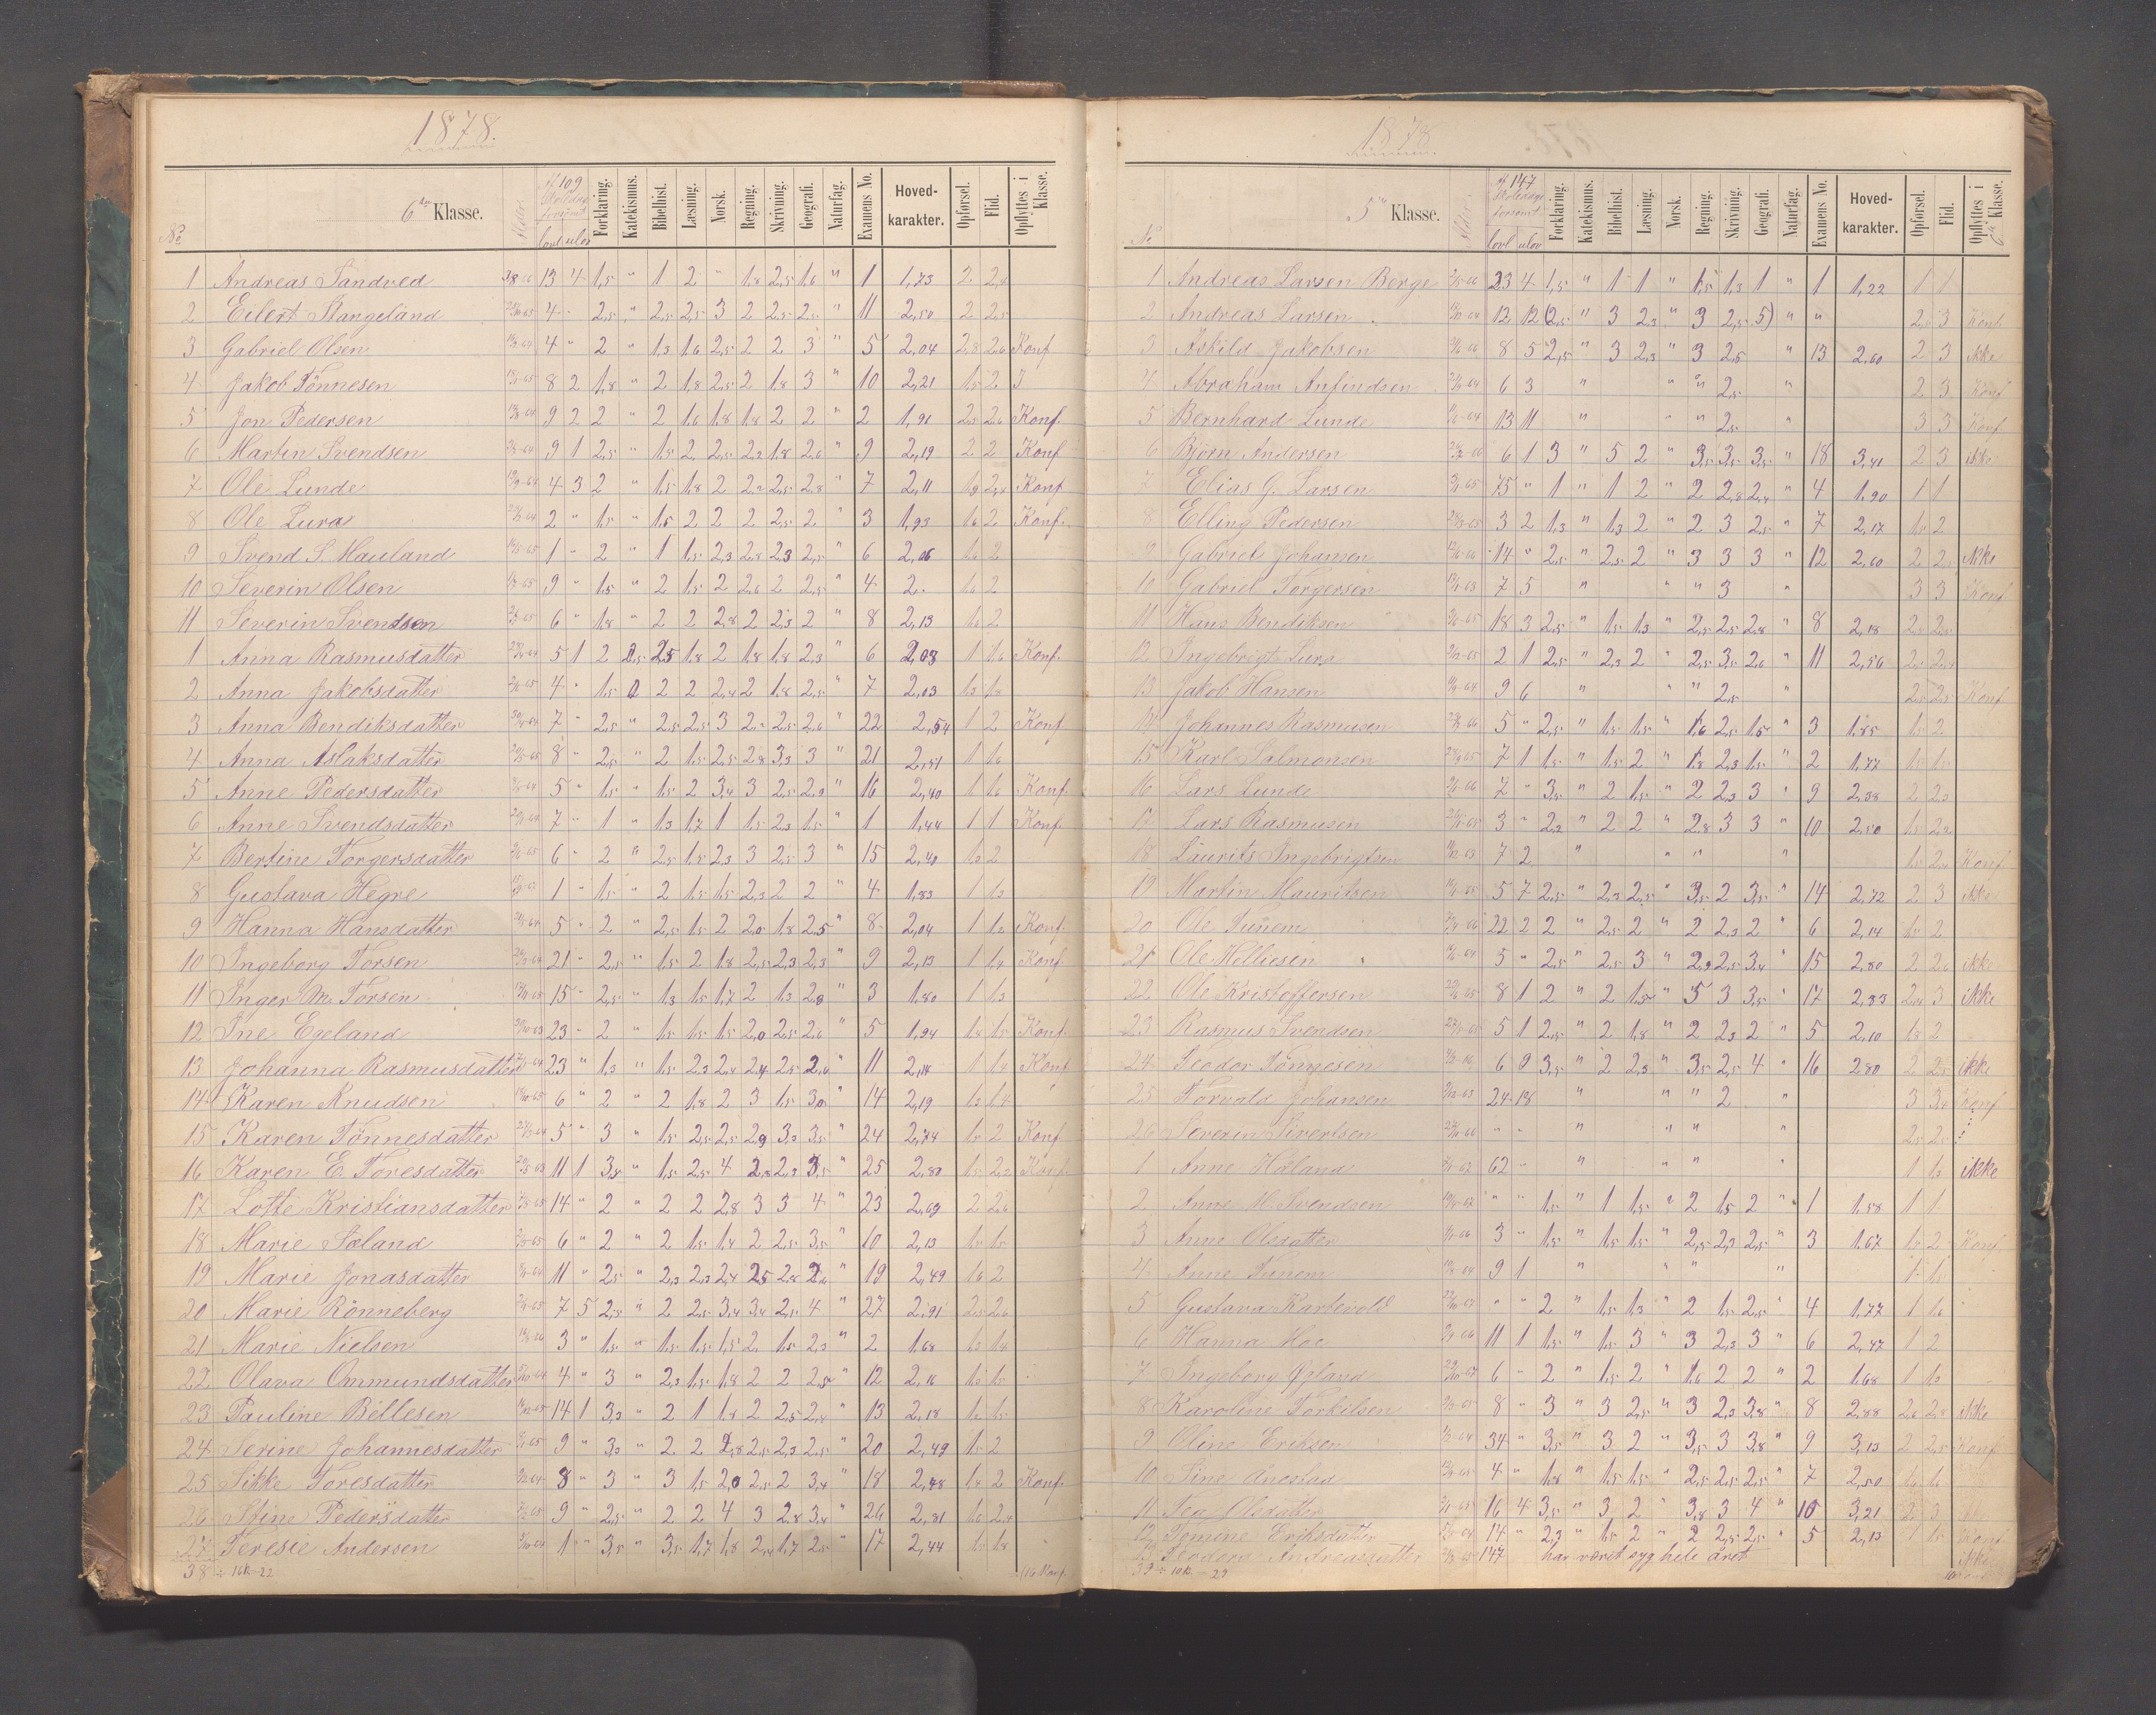 1878.
No
6te Klasse.
Alder
Af 109 Skoledage forsømt
lovl ulov
Forklaring.
Katekismus.
Bibelhist.
Læsning.
Norsk.
Regning.
Skrivning.
Geografi.
Naturfag.
Examens No.
Hoved-karakter.
Opførsel.
Flid.
Opflyttes i Klasse.
1 Andreas Sandved 13 4 1,5 " 1 2 " 1,8 2,5 1,6 " 1 1,73 2 2,4
2 Eilert Stangeland 4 " 2,5 " 2,5 2,5 3 2 2,5 2,5 " 11 2,50 2 2,5
3 Gabriel Olsen 4 " 2 " 1,3 1,6 2,5 2 2 3 " 5 2,04 2,8 2,6 Konf
4 Jakob Tönnesen 8 2 1,8 " 2 1,8 2,5 2 1,8 3 " 10 2,21 1,5 2
5 Jon Pedersen 9 2 2 " 2 1,6 1,8 1,8 2 2 " 2 1,91 2,5 2,6 Konf.
6 Martin Svendsen 9 1 2,5 " 1,5 2 2,5 2,2 1,8 2,6 " 9 2,19 2 2 Konf
7 Ole Lunde 4 3 2 " 1,5 1,8 2 2,2 2,5 2,8 " 7 2,11 1,9 2,4 Konf
8 Ole Lura 2 " 1,5 " 1,5 2 2 2 2,5 2 " 3 1,93 1,6 2 Konf.
9 Svend S. Hauland 1 " 2 " 1 1,5 2,3 2,8 2,3 2,5 " 6 2,06 1,6 2
10 Severin Olsen 9 " 1,5 " 2 1,5 2 2,6 2 2,5 " 4 2. 1,6 2
11 Severin Svendsen 6 " 1,8 " 2 2 2,8 2 2,3 2 " 8 2,13 1,6 2
1 Anna Rasmusdatter 5 1 2 2,5 2,5 1,8 2 1,8 1,8 2,3 " 6 2,08 1 1,6 Konf.
2 Anna Jakobsdatter 4 " 1,5 2 2 2,4 2 1,8 2,5 " 7 2,03 1,3 1,8
3 Anna Bendiksdatter 7 " 2,5 " 2,5 2,5 3 2,2 2,5 2,6 " 22 2,54 1 2 Konf.
4 Anna Aslaksdatter 8 " 2,5 " 2 1,5 2,5 2,8 3,3 3 " 21 2,51 1 1,6
5 Anne Pedersdatter 5 " 1,5 " 1,5 2 3,4 3 2,5 2,9 " 16 2,40 1 1,6 Konf.
6 Anne Svendsdatter 7 " 1 " 1,3 1,7 1 1,5 2,3 1,5 " 1 1,44 1 1 Konf.
7 Bertine Torgersdatter 6 " 2 " 2,5 1,5 2,3 3 2,5 3 " 15 2,40 1,3 2
8 Gustava Hegre 1 " 1,5 " 2 1,5 1,5 2,3 2 2 " 4 1,83 1 1,3
9 Hanna Hansdatter 5 " 2 " 2,5 1,5 2 2,0 1,8 2,5 " 8 2,04 1 1,6 Konf.
10 Ingeborg Torsen 21 " 2,5 " 1,5 2 1,8 2,5 2,3 2,3 " 9 2,13 1 1,4 Konf.
11 Inger M. Torsen 15 " 2,5 " 1,3 1,5 1,7 2 1,3 2,8 " 3 1,80 1 1,3
12 Ine Egeland 23 " 2 " 1,5 1,5 1,5 2,0 2,5 2,6 " 5 1,94 1,6 1,5 Konf.
13 Johanna Rasmusdatter 23 " 1,3 " 1,5 2,3 2,4 2,4 2,5 2,6 " 11 2,14 1 1,4 Konf
14 Karen Knudsen 6 " 2 " 2 1,8 2 3 1,5 3,0 " 14 2,19 1,3 1,4
15 Karen Tönnesdatter 5 " 3 " 1,5 2,5 2,5 2,9 3,3 3,5 " 24 2,74 1,5 2 Konf
16 Karen E. Toresdatter 11 1 3,8 " 1,5 2,5 4 2,8 2,3 3,5 " 25 2,80 1,5 2,2 Konf
17 Lotte Kristiansdatter 14 " 2 " 2 2 2,8 3 3 4 " 23 2,69 2 2,6
18 Marie Sæland 6 " 2 " 2 1,5 1,4 2 2,5 3,5 " 10 2,13 1,5 1,5
19 Marie Jonasdatter 11 " 2,5 " 2,3 2,3 2,4 2,5 2,8 2,6 " 19 2,49 1,6 2
20 Marie Rönneberg 7 5 2,5 " 2 2,5 3,4 3,4 2,5 4 " 27 2,91 2,5 2,6
21 Marie Nielsen 3 " 1,5 " 1,5 1,5 1,5 2 1,5 2,3 " 2 1,68 1,3 1,4
22 Olava Ommundsdatter 4 " 3 " 2,3 1,5 1,8 2 2 2,5 " 12 2,16 1,3 1,5
23 Pauline Bellesen 14 1 3,3 " 2 1 1,8 2 2,5 2,4 " 13 2,18 1,2 1,5
24 Serine Johannesdatter 9 " 3,3 " 2 2 2,8 2,5 2,3 2,5 " 20 2,49 1,5 2
25 Sikke Toresdatter 8 " 3 " 3 1,5 2,0 2,5 2 3,4 " 18 2,48 1,4 2 Konf.
26 Stine Pedersdatter 9 " 2,5 " 2 2 4 3 2,8 3,4 " 26 2,81 1,6 2,4
27 Teresie Andersen 1 " 3,5 " 3,5 1,7 1,8 2,4 1,7 2,5 " 17 2,44 1,5 1,8
38 ÷ 16k = 22 (16 Konf.
1878.
No
5te Klasse.
Alder
Af 147 Skoledage forsømt
lovl ulov
Forklaring.
Katekismus.
Bibelhist.
Læsning.
Norsk.
Regning.
Skrivning.
Geografi.
Naturfag.
Examens No.
Hoved-karakter.
Opførsel.
Flid.
Opflyttes i 6te Klasse.
1 Andreas Larsen Berge 23 4 1,5 " 1 1 " 1,5 1,3 1 " 1 1,22 1 1
2 Andreas Larsen 12 12 (2,5 " 3 2,3 " 3 2,5 5) " " 2,5 3 Konf.
3 Askild Jakobsen 8 5 2,5 " 3 2,3 " 3 2,8 " 13 2,60 2 3 ikke
4 Abraham Anfindsen 6 3 " " " 2,5 " 2 3 Konf
5 Bernhard Lunde 13 11 " " " 2,5 " 3 3 Konf
6 Björn Andersen 6 1 3 " 5 2 " 3,5 3,5 3,5 " 18 3,41 2 3 ikke
7 Elias G. Larsen 15 " 1 " 1 2 " 2 2,8 2,4 " 4 1,90 1 1
8 Elling Pedersen 3 2 1,3 " 1,3 2 " 2 3 2,5 " 7 2,17 1,5 2
9 Gabriel Johansen 14 " 2,5 " 2,3 2 " 3 3 3 " 12 2,60 2 2 ikke
10 Gabriel Torgersen 7 5 " " " 3 " 3 3 Konf
11 Hans Bendiksen 18 3 2,5 " 1,5 1,3 " 2,5 2,5 2,8 " 8 2,18 2,5 2,5
12 Ingebrigt Lura 2 1 2,5 " 2,3 2 " 2,5 3,5 2,6 " 11 2,56 2,5 2,4
13 Jakob Hansen 9 6 " " " 2,5 " 2,5 2,5 Konf
14 Johannes Rasmusen 5 " 2,5 " 1,5 1,5 " 1,6 2,5 1,5 " 3 1,85 1,5 2
15 Karl Salmonsen 7 1 1,5 " 1,5 2 " 1,8 2,3 1,5 " 2 1,77 1,5 1,5
16 Lars Lunde 7 " 3,5 " 2 1,5 " 2 2,3 3 " 9 2,38 2 2,3
17 Lars Rasmusen 3 " 2,2 " 2 2 " 2,8 3 3 " 10 2,50 1,5 2,2
18 Laurits Ingebrigtsen 7 2 " " " " 1,5 2,4 Konf
19 Martin Mauritsen 5 7 2,5 " 2,3 2,5 " 3,5 2 3,5 " 14 2,72 2 3 ikke
20 Ole Tunem 22 2 2 " 2,5 2 " 2 2,3 2 " 6 2,14 1,5 2
21 Ole Melliesen 5 " 2,5 " 2,5 3 " 2,9 2,5 3,4 " 15 2,80 2 2,6 ikke
22 Ole Kristoffersen 8 1 2 " 2 1,5 " 5 3 3,5 " 17 2,83 2,4 3 ikke
23 Rasmus Svendsen 5 1 2,5 " 2 1,8 " 2 2,3 2 " 5 2,10 1,8 2
24 Teodor Tönnesen 6 9 3,5 " 2 2,3 " 3,5 2,5 4 " 16 2,80 2 2,5 ikke
25 Torvald Johansen 24 18 " " " 2 " 3 3,4 Konf
26 Severin Sivertsen " " " " " " 2,5 2,5
1 Anne Håland 62 " " " " " 1 1,3 ikke
2 Anne M. Svendsen " " 1,5 " 1 1,5 " 2 1,5 2 " 1 1,58 1 1
3 Anne Olsdatter 3 " 1,5 " 1,5 1,5 " 2,5 2,3 2,5 " 3 1,67 1,5 2 Konf
4 Anne Tunem 9 1 " " " " 1 1,5
5 Gustava Kartevold " " 2 " 1,5 1,3 " 2 1,5 2,5 " 4 1,77 1 1,6
6 Hanna Moe 11 1 1,5 " 1,5 3 " 3 2,3 3 " 6 2,47 1 2
7 Ingeborg Opland 6 " 2 " 1,5 2 " 1,6 2 2 " 2 1,68 1 1,3
8 Karoline Torkilsen 8 " 3 " 3 2,5 " 3 2,3 3,8 " 8 2,88 2,6 2,8 ikke
9 Oline Eriksen 34 " 3,5 " 3 2 " 3,5 3 3,8 " 9 3,13 2 2,5 Konf
10 Sine Anestad 4 " 1,8 " 1,5 1,5 " 2,5 2,5 2,5 " 7 2,50 1,6 1,6
11 Tea Olsdatter 16 4 3,5 " 3 2 " 3,8 3 4 " 10 3,21 2,5 3
12 Tomine Eriksdatter 14 " 2,3 " 1,5 2 " 2 2,5 2,5 " 5 2,13 1 1,5 Konf
13 Teodora Andreasdatter 147 har været syg hele året ikke
39 ÷ 10k = 29